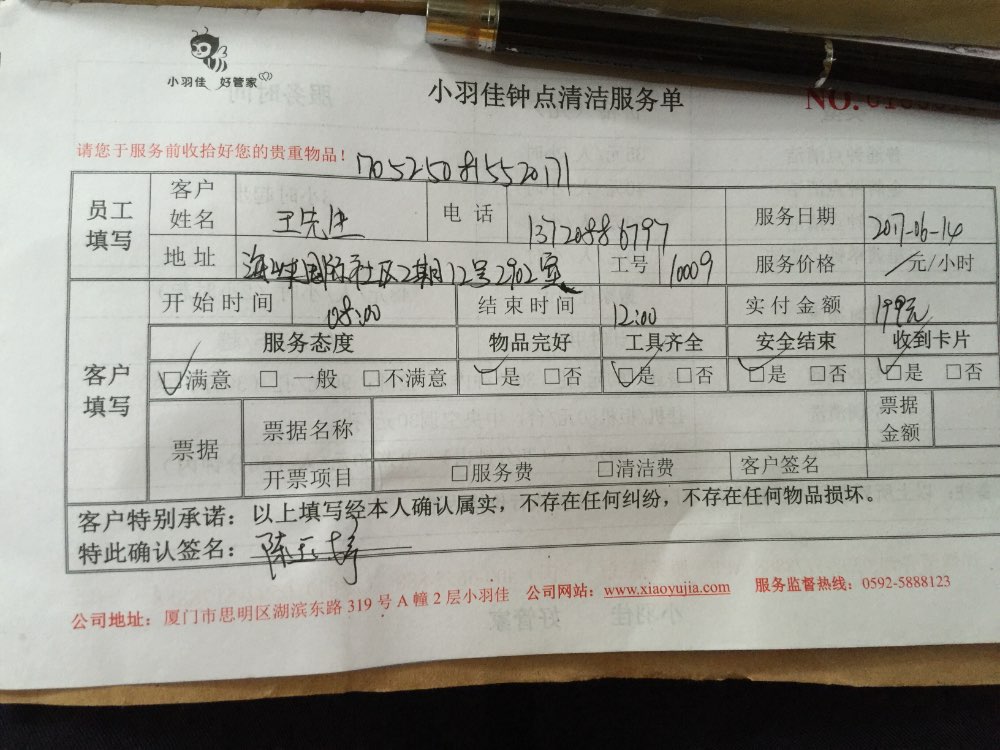 小羽佳 好管家
小羽佳钟点清洁服务单
NO.
请您于服务前收拾好您的贵重物品！
1705250815520171
员工填写
客户姓名 王先生 电话 13720886797 服务日期 2017-06-14
地址 海峡国际社区2期12号2902室 工号 10009 服务价格 /元/小时
客户填写
开始时间 08:00 结束时间 12:00 实付金额 199元
服务态度 物品完好 工具齐全 安全结束 收到卡片
☑满意 □一般 □不满意 ☑是 □否 ☑是 □否 ☑是 □否 ☑是 □否
票据 票据名称 票据金额
开票项目 □服务费 □清洁费 客户签名
客户特别承诺：以上填写经本人确认属实，不存在任何纠纷，不存在任何物品损坏。
特此确认签名：陈玉婷
公司地址：厦门市思明区湖滨东路 319 号 A 幢 2 层小羽佳 公司网站：www.xiaoyujia.com 服务监督热线：0592-5888123